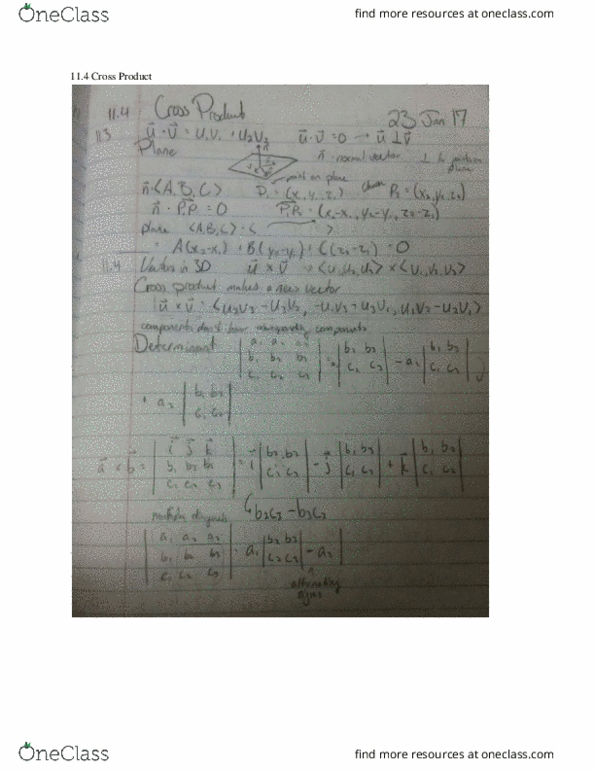 OneClass
find more resources at oneclass.com
11.4 Cross Product
11.4 Cross Product 23 Jan 17
11.3 u⃗ · v⃗ = U₁V₁ + U₂V₂ u⃗ · v⃗ = 0 → u⃗ ⊥ v⃗
Plane n⃗ - normal vector ⊥ to plane
point on plane
n⃗ = <A, B, C> P₁ = (x₁, y₁, z₁) P₂ = (x₂, y₂, z₂)
n⃗ · P₁P₂ = 0 P₁P₂ = (x₂-x₁, y₂-y₁, z₂-z₁)
plane <A, B, C> · < >
A(x₂-x₁) + B(y₂-y₁) + C(z₂-z₁) = 0
11.4 Vectors in 3D u⃗ × v⃗ = <U₁, U₂, U₃> × <V₁, V₂, V₃>
Cross product makes a new vector
u⃗ × v⃗ = <U₂V₃ - U₃V₂, -U₁V₃ - U₃V₁, U₁V₂ - U₂V₁>
components don't have components
Determinant
| a₁ a₂ a₃ |
| b₁ b₂ b₃ |
| c₁ c₂ c₃ |
| b₂ b₃ |
| c₂ c₃ |
- a₂
| b₁ b₃ |
| c₁ c₃ |
+ a₃
| b₁ b₂ |
| c₁ c₂ |
a⃗ × b⃗ =
| i⃗ j⃗ k⃗ |
| b₁ b₂ b₃ |
| c₁ c₂ c₃ |
= i⃗
| b₂ b₃ |
| c₂ c₃ |
- j⃗
| b₁ b₃ |
| c₁ c₃ |
+ k⃗
| b₁ b₂ |
| c₁ c₂ |
multiply diagonals b₂c₃ - b₃c₂
| a₁ a₂ a₃ |
| b₁ b₂ b₃ |
| c₁ c₂ c₃ |
= a₁
| b₂ b₃ |
| c₂ c₃ |
- a₂
alternating signs
OneClass
find more resources at oneclass.com